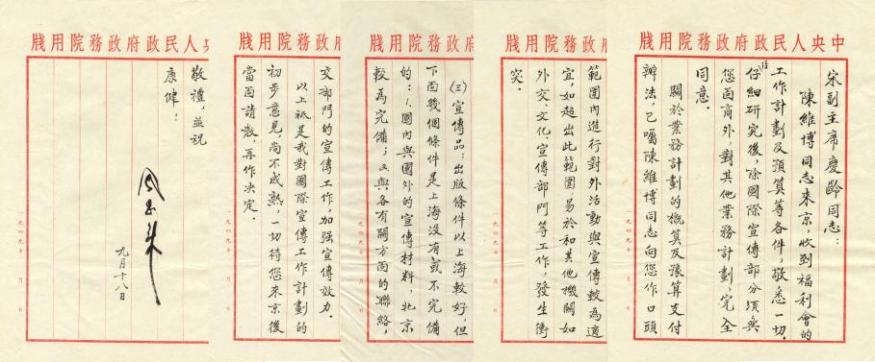 中央人民政府政務院用牋
宋副主席慶齡同志：
陳維博同志来京，收到福利會的
工作計劃及預算等各件，敬悉一切。
仔細研究後，除國際宣傳部分須與
您面商外，對其他業務計劃，完全
同意。
關於業務計劃的概算及豫算支付
辦法，已囑陳維博同志向您作口頭
府政務院用牋
範圍內進行對外活動與宣傳較為適
宜，如超出此範圍易於和其他機關如
外交、文化、宣傳部門等工作，發生衝
突。
府政務院用牋
(三)宣傳品：出版條件以上海較好，但
下面幾個條件是上海没有或不完備
的：1.國內與國外的宣傳材料，北京
較為完備；2.與各有關方面的聯絡，
府政務院用牋
交部門的宣傳工作，加强宣傳效力。
以上祇是我對國際宣傳工作計劃的
初步意見，尚不成熟，一切待您來京後
當面請教，再作決定。
央人民政府政務院用牋
敬禮，並祝
康健！
周恩来
九月十八日